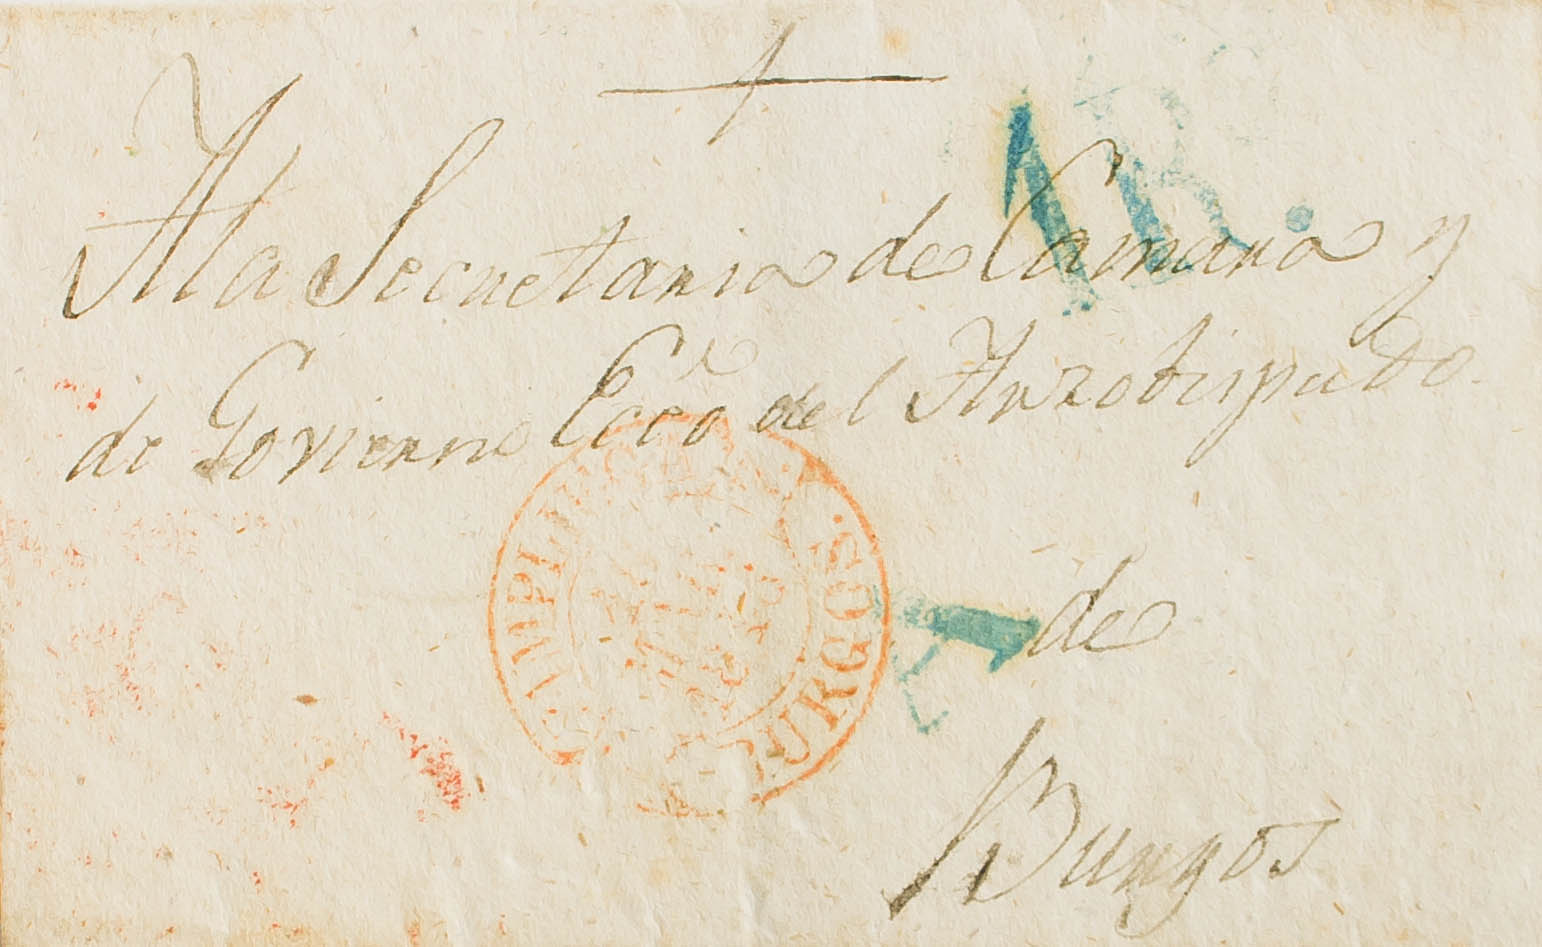 1R.
A la Secretaria de Camara y
de Govierno Ecco del Arzobispado
de
Burgos
BURGOS.